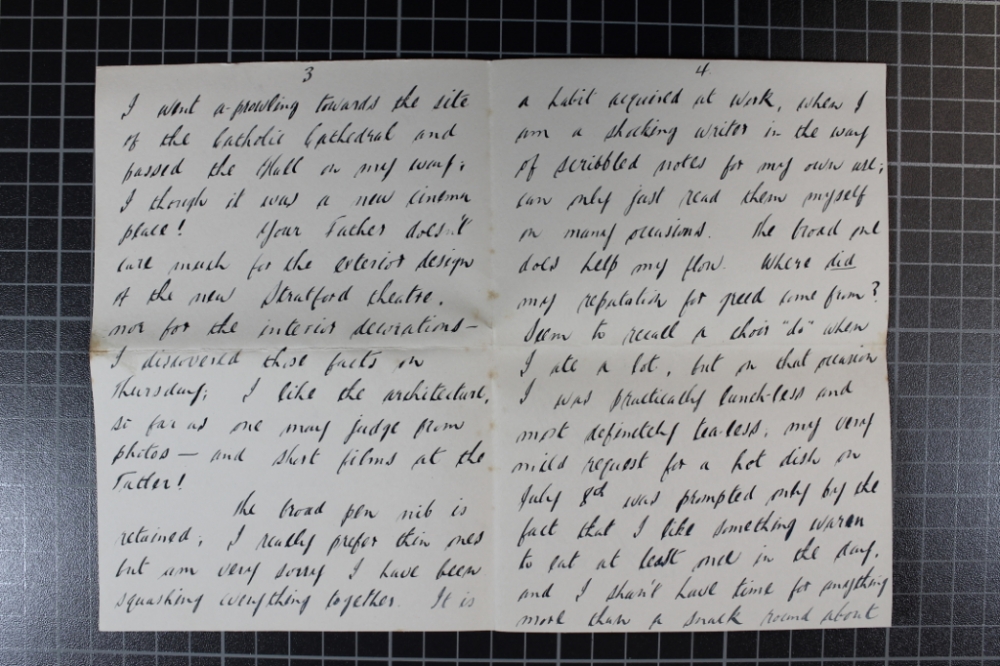 3
I went a-prowling towards the site
of the Catholic Cathedral and
passed the Hall on my way.
I though it was a new cinema
place! Your Father doesn't
care much for the exterior design
of the new Stratford theatre,
nor for the interior decorations —
I discovered these facts on
Thursday; I like the architecture,
so far as one may judge from
photos — and short films at the
Tatler!
The broad pen nib is
retained; I really prefer thin ones
but am very sorry I have been
squashing everything together. It is
4
a habit acquired at work, when I
am a shocking writer in the way
of scribbled notes for my own use;
can only just read them myself
on many occasions. The broad one
does help my flow. Where did
my reputation for greed come from?
Seem to recall a choir "do" when
I ate a lot, but on that occasion
I was practically lunch-less and
most definitely tea-less, my very
mild request for a hot dish on
July 8th was prompted only by the
fact that I like something warm
to eat at least once in the day,
and I shan't have time for anything
more than a snack round about